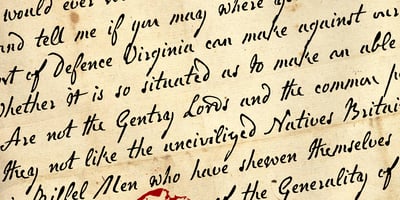 would ever
and tell me if you may where
of Defence Virginia can make against our
Whether it is so situated as to make an able
Are not the Gentry Lords and the common
they not like the uncivilized Natives Britai
Riffel Men who have shewen themselves
of the Generality of